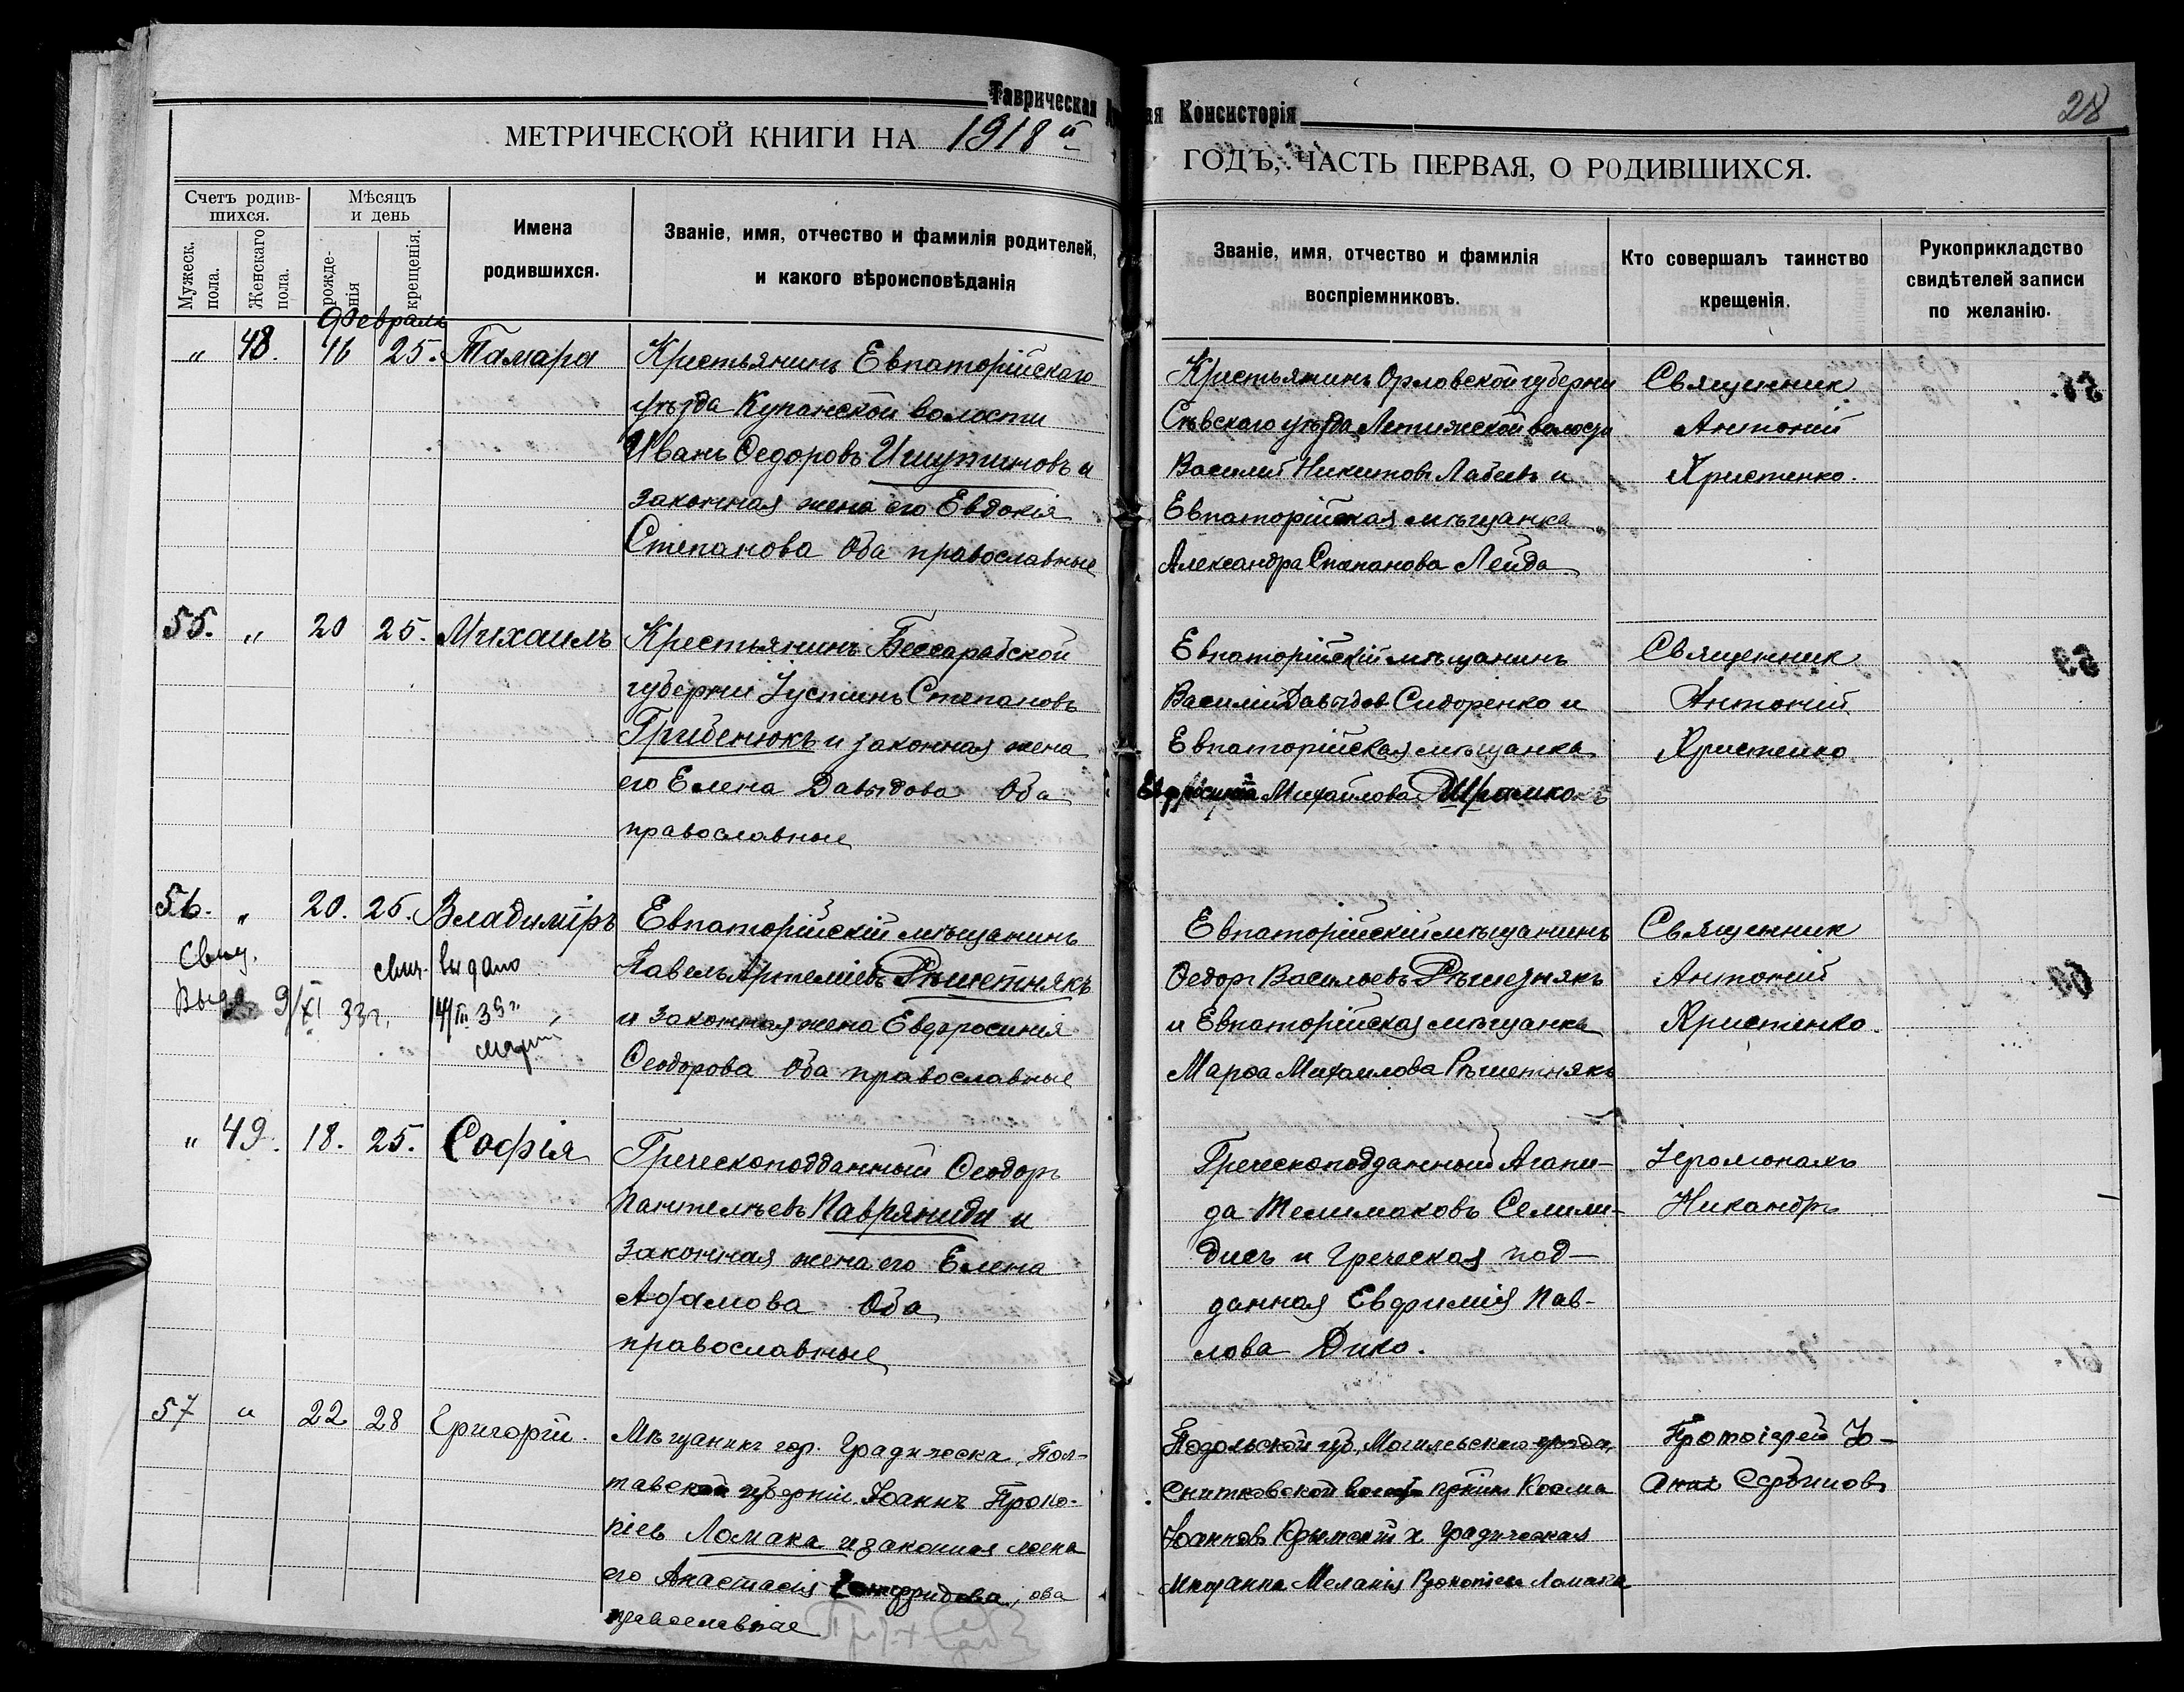 Таврическая
ая Консисторія
28
МЕТРИЧЕСКОЙ КНИГИ НА 1918 й
ГОДЪ, ЧАСТЬ ПЕРВАЯ, О РОДИВШИХСЯ.
Счетъ родив-
шихся.
Мужеск.
пола.
Женскаго
пола.
Мѣсяцъ
и день
рожде-
нія
крещенія.
Имена
родившихся.
Званіе, имя, отчество и фамилія родителей,
и какого вѣроисповѣданія
Званіе, имя, отчество и фамилія
воспріемниковъ.
Кто совершалъ таинство
крещенія.
Рукоприкладство
свидѣтелей записи
по желанію.
Февраль
" 48. 16 25. Тамара
Крестьянинъ Евпаторійскаго
уѣзда Кунанской волости
Иванъ Ѳедоровъ Ишутиновъ и
законная жена его Евдокія
Степанова Оба православные
Крестьянинъ Орловской губерни
Сѣвскаго уѣзда волости
Василій Никитовъ Лабеевъ и
Евпаторійская мѣщанка
Александра Степанова Лейда
Священникъ
Антоній
Христенко.
55. " 20 25. Михаилъ
Крестьянинъ Бессарабской
губерніи Іустинъ Степановъ
Грибенюкъ и законная жена
его Елена Давыдова Оба
православные
Евпаторійскій мѣщанинъ
Василій Давыдов Сидоренко и
Евпаторійская мѣщанка
Евфросинія Михайлова Шрамко
Священникъ
Антоній
Христенко
56. " 20. 25. Владиміръ
Свид.
Выда 9/XI 33 г.
свид. выдано
14/III 35 г.
Евпаторійскій мѣщанинъ
Павелъ Артеміевъ Рѣшетнякъ
и законная жена Евфросинія
Ѳеодорова Оба православные
Евпаторійскій мѣщанинъ
Ѳедоръ Васильевъ Рѣшетнякъ
и Евпаторійская мѣщанка
Марѳа Михаилова Рѣшетнякъ
Священникъ
Антоній
Христенко.
" 49. 18. 25. Софія
Греческоподданный Ѳеодоръ
Пантелѣевъ Павряниди и
законная жена его Елена
Аврамова Оба
православные
Греческоподданный Агапи-
да Телимаховъ Селили-
дисъ и Греческая под-
данная Евфимія Пав-
лова Дико.
Іеромонахъ
Никандръ
57 " 22 28 Григорій.
Мѣщанинъ гор. Градижска, Пол-
тавской губерніи Іоаннъ Проко-
піев Ломака и законная жена
его Анастасія, оба
православные
Подольской губ, Могилевскаго уѣзда,
Снитковской волости Косма
Іоаннов Крымскій и Градижская
Мѣщанка Меланія Прокопіева Ломака
Протоіерей Іо-
аннъ Сербинов